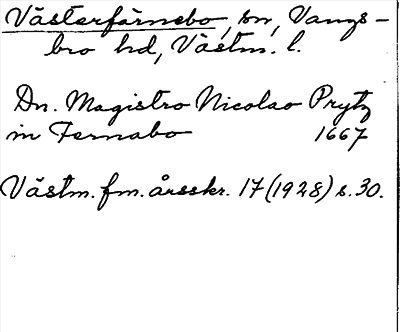 Västerfärnebo, sn, Vangs-
bro hd, Västm. l.
Dn. Magistro Nicolao Prytz
in Fernabo 1667
Västm. fm. årsskr. 17 (1928) s. 30.